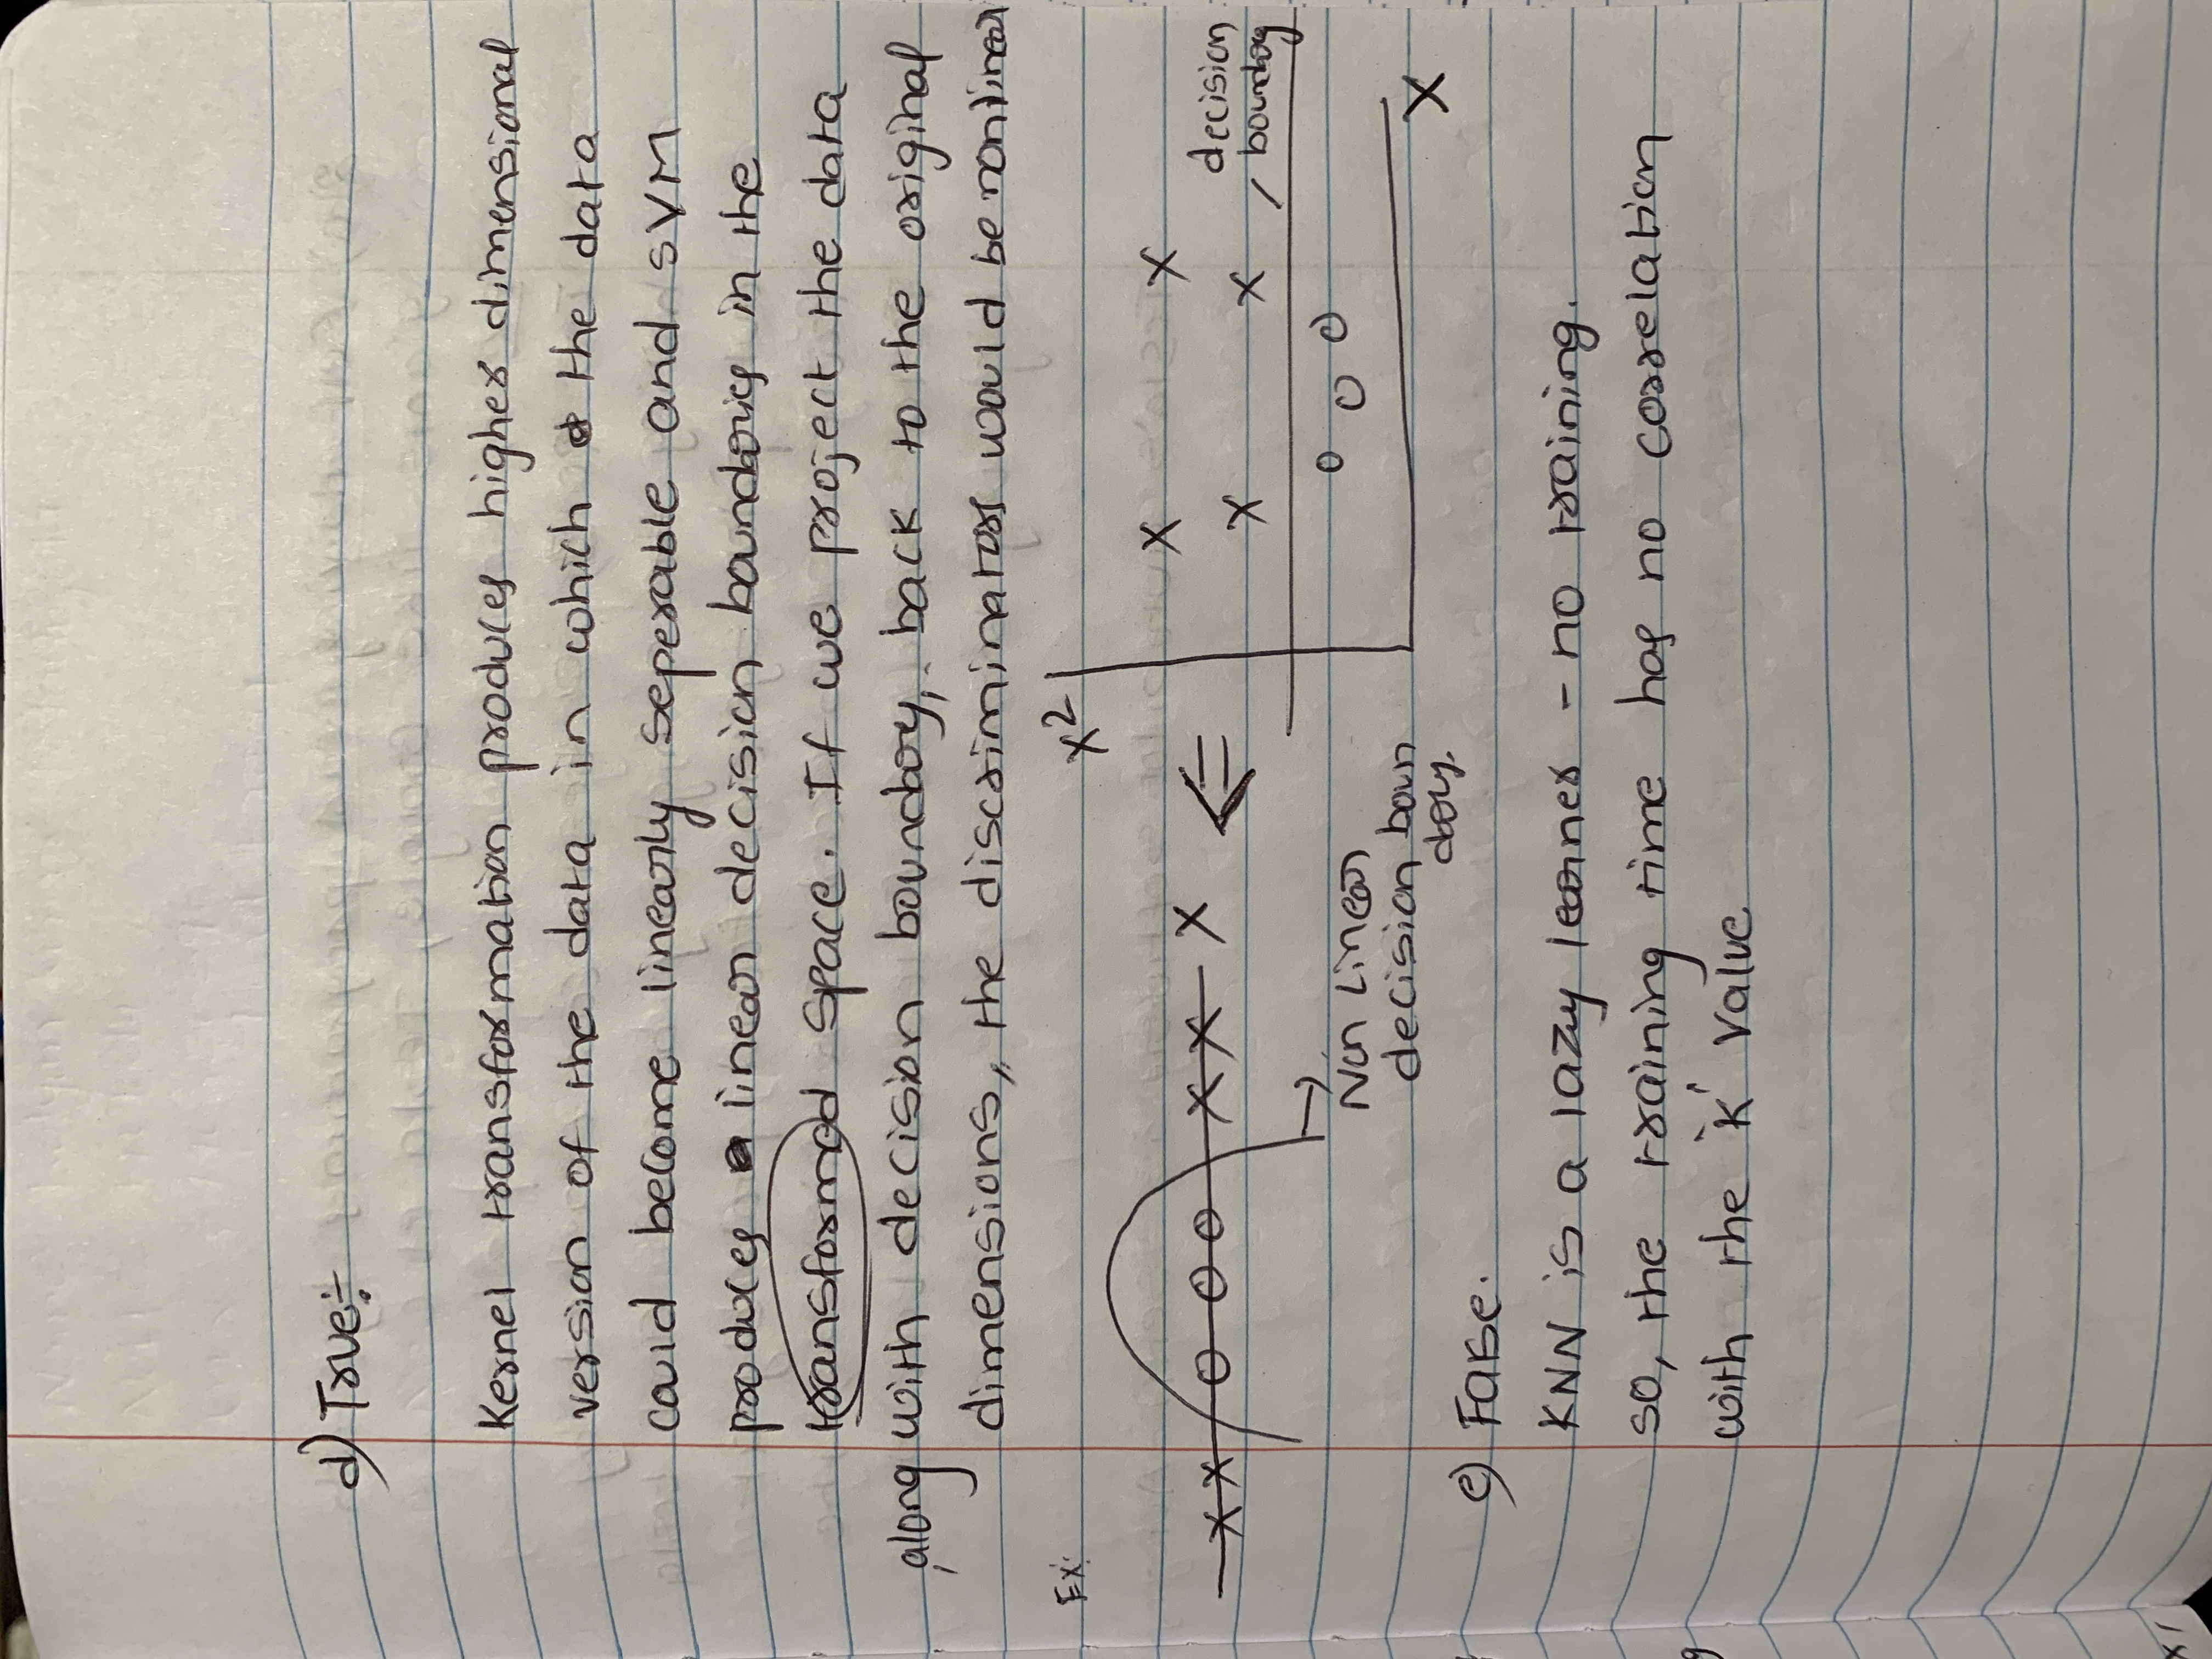 d) True:-
Kernel transformation produces higher dimensional
version of the data in which the data
could become linearly seperable and SVM
produces linear decision boundaries in the
transformed space. If we project the data
along with decision boundary, back to the original
dimensions, the discriminators would be nonlinear
Ex:
x x o o o x x x
Non Linear
decision boun
dary.
x²
x x
x x
decision
boundary
o o o
x
e) False.
KNN is a lazy learner - no training.
so, the training time has no correlation
with the 'K' value
x1